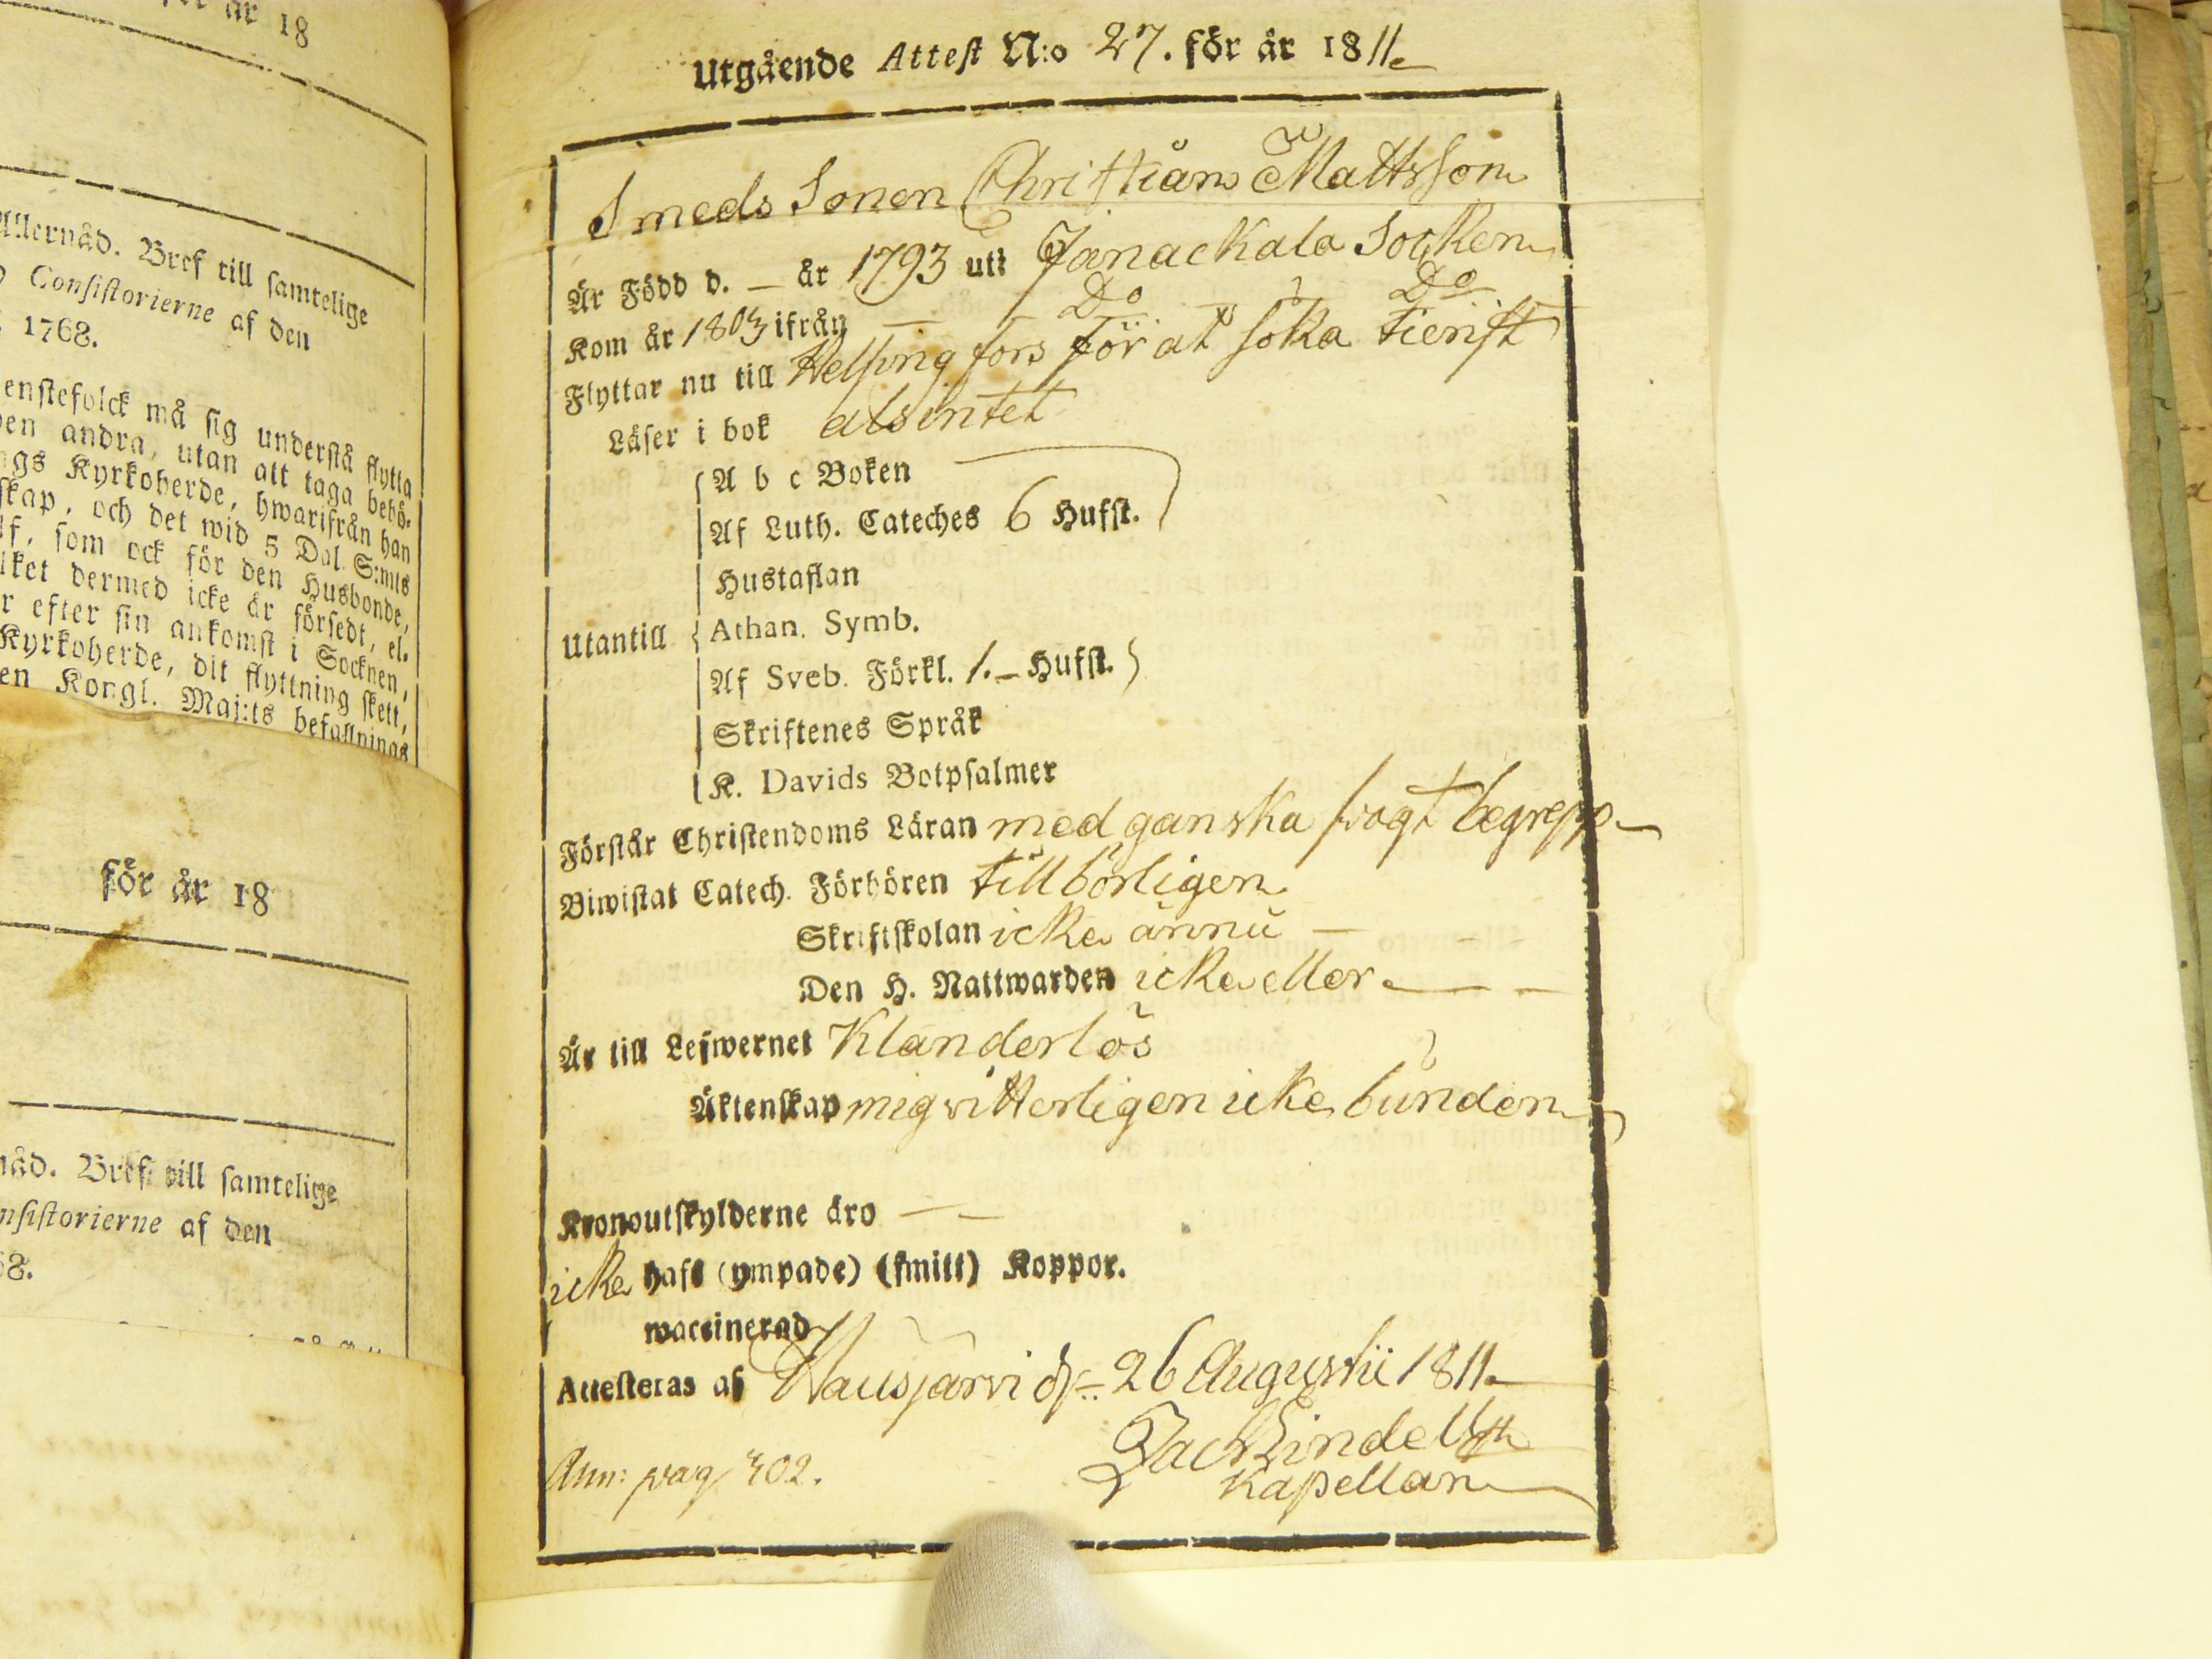 för år 18
Allernåd. Bref till samtelige
Consistorierne af den
1768.
enstefolck må sig understå flytta
en andra, utan att taga behö-
gs Kyrkoherde, hwarifrån han
skap, och det wid 5 Dal. S:mts
lf, som ock för den Husbonde,
lket dermed icke är försedt, el-
r efter sin ankomst i Socknen,
Kyrkoherde, dit flyttning skett,
en Kongl. Maj:ts befallnings
för år 18
nåd. Bref till samtelige
nsistorierne af den
68.
Utgående Attest N:o 27. för år 1811
Smeds Sonen Christian Mattsson
Är Född d. – år 1793 uti Janackala Socken
Kom år 1803 ifrån — Do — Do
Flyttar nu till Helsingfors för at söka tienst
Läser i bok alsintet
A b c Boken
Af Luth. Cateches 6 Hufst.
Hustaflan
Utantill Athan. Symb.
Af Sveb. Förkl. 1.– Hufst.
Skriftenes Språk
K. Davids Botpsalmer
Förstår Christendoms Läran med ganska svagt begrepp
Biwistat Catech. Förhören tillbörligen
Skriftskolan icke ännu —
Den H. Nattwarden icke eller — –
Är till Lefwernet Klanderlös
Äktenskap mig vitterligen icke bunden
Kronoutskylderne äro — —
icke haft (ympade) (smitt) Koppor.
waccinerad
Attesteras af Hausjärvi d. 26 Augustii 1811
Zach Lindell
Kapellan
Ann: pag 302.